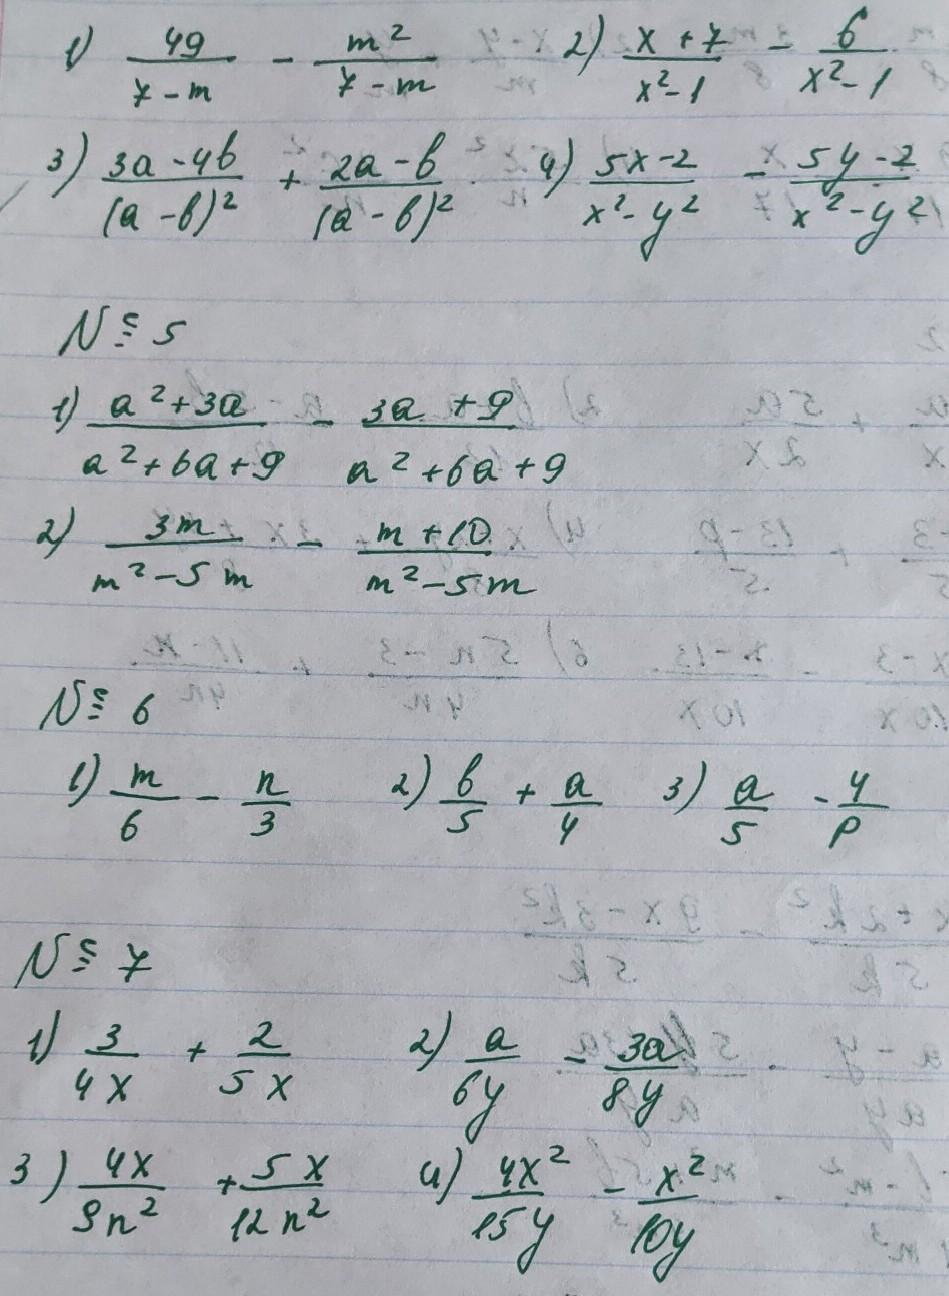 1) 49/(7-m) - m²/(7-m) 2) (x+7)/(x²-1) - 6/(x²-1)
3) (3a-4b)/(a-b)² + (2a-b)/(a-b)² 4) (5x-2)/(x²-y²) - (5y-2)/(x²-y²)
№ 5
1) (a²+3a)/(a²+6a+9) - (3a+9)/(a²+6a+9)
2) 3m/(m²-5m) - (m+10)/(m²-5m)
№ 6
1) m/6 - n/3 2) b/5 + a/4 3) a/5 - 4/p
№ 7
1) 3/(4x) + 2/(5x) 2) a/(6y) - 3a/(8y)
3) 4x/(9n²) + 5x/(12n²) 4) 4x²/(15y) - x²/(10y)